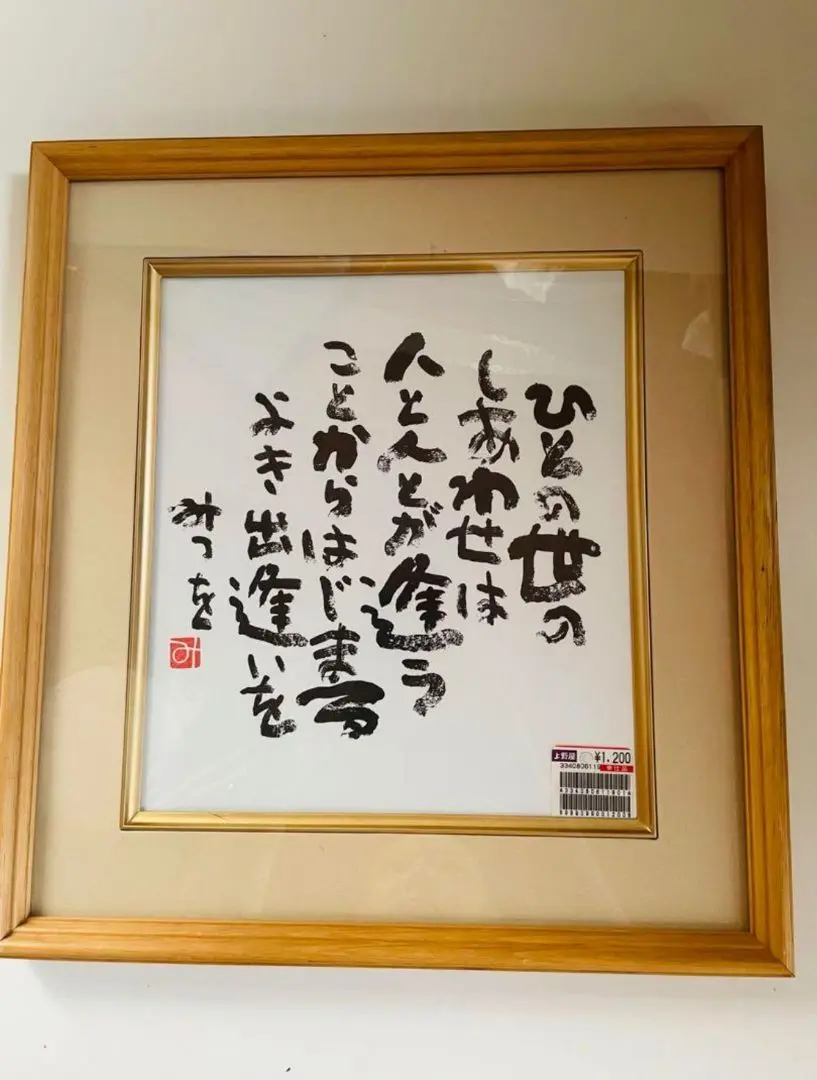 ひとの世の
しあわせは
人と人とが逢う
ことからはじまる
よき出逢いを
みつを
み
上野屋 ¥1,200